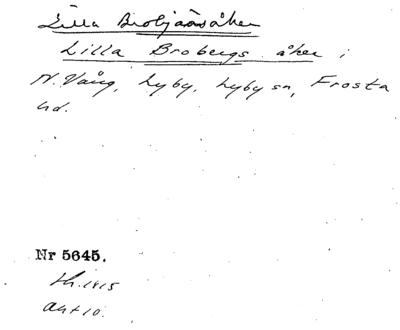 Lilla Brobjäårsåker
Lilla Brobergs åker i
N. Vång, Lyby, Lyby sn, Frosta
hd.
Nr 5645.
Lh. 1915
Akt 10.